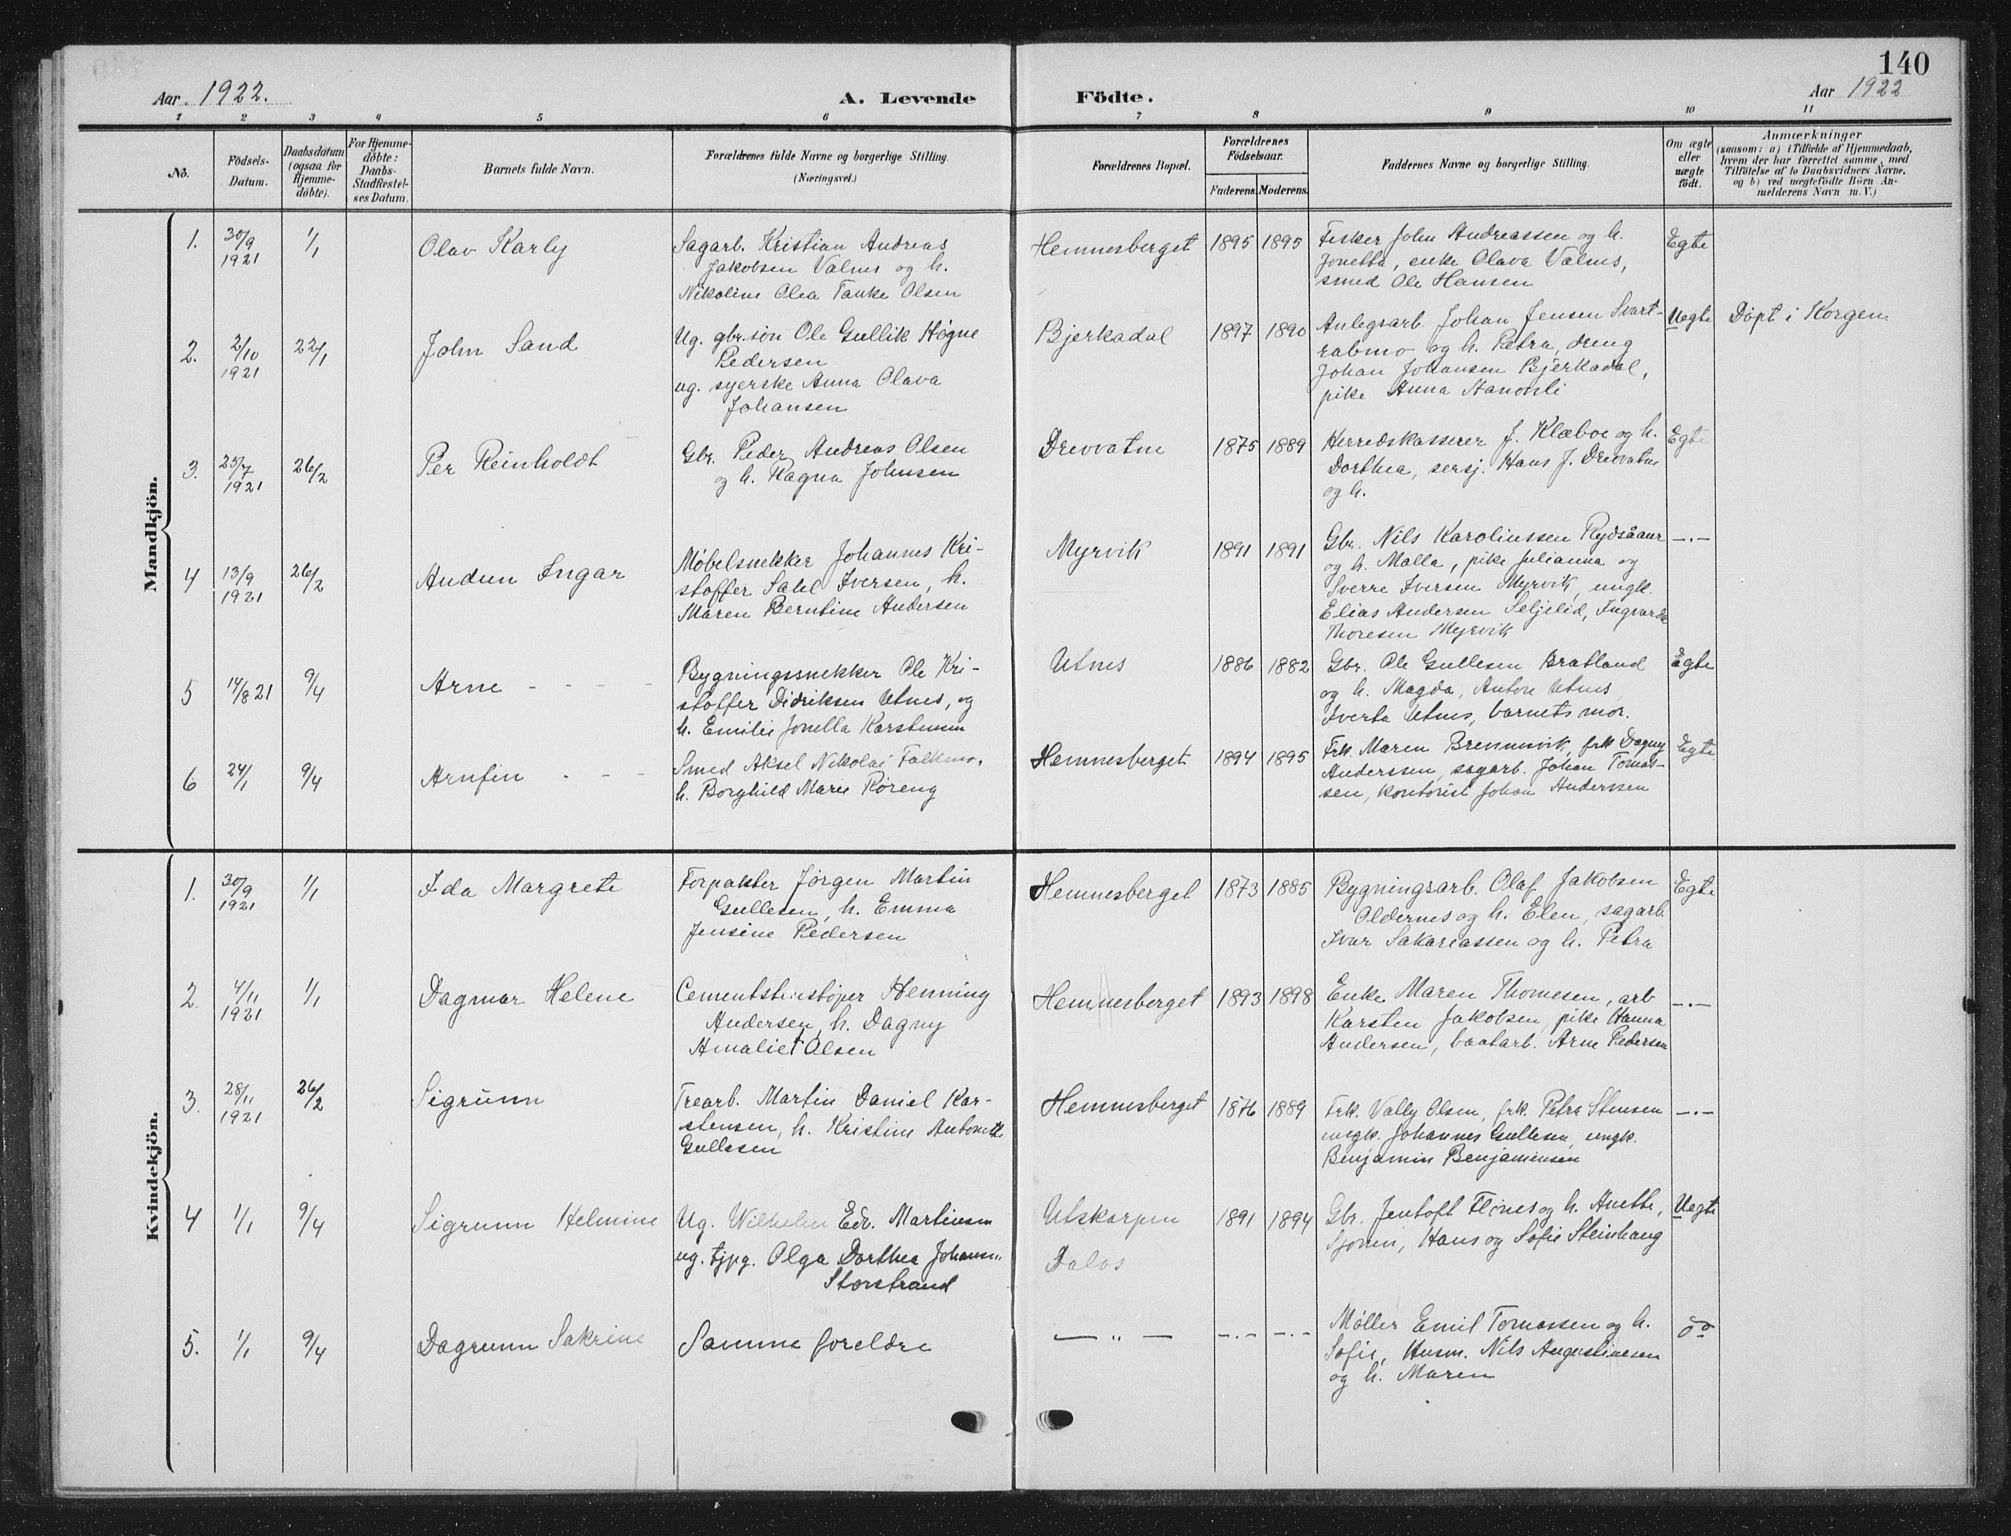 140
Aar 1922.
A. Levende
Födte.
Aar 1922
1 2 3 4 5 6 7 8 9 10 11
No.
Födsels-
Datum.
Daabsdatum
(ogsaa for
Hjemme-
döbte).
For Hjemme-
döbte:
Daabs-
Stadfæstel-
ses Datum.
Barnets fulde Navn.
Forældrenes fulde Navne og borgerlige Stilling.
(Næringsvei.)
Forældrenes Bopæl.
Forældrenes
Födselsaar.
Faderens. Moderens.
Faddernes Navne og borgerlige Stilling.
Om ægte
eller
uægte
födt.
Anmærkninger
(saasom: a) i Tilfælde af Hjemmedaab,
hvem der har forrettet samme, med
Tilföielse af to Daabsvidners Navne.
og b) ved uægtefödte Börn An-
melderens Navn m. V.)
Mandkjön.
1.
30/9
1921
1/1
Olav Karly
Sagarb. Kristian Andreas
Jakobsen Valnes og h.
Nikoline Olea Tanke Olsen
Hemnesberget
1895
1895
Fisker John Andreassen og h.
Jonetta, enke Olava Valnes,
smed Ole Hansen
Egte
2.
2/10
1921
22/1
John Sand
Ug. gbr.søn Ole Gullik Høgne
Pedersen
ug. syerske Anna Olava
Johansen
Bjerkadal
1897
1890
Anlegsarb. Johan Jensen Svart-
rabmo og h. Petra, dreng
Johan Johansen Bjerkadal,
pike Anna
Uegte
Döpt i Korgen
3.
25/7
1921
26/2
Per Reinholdt
Gbr. Peder Andreas Olsen
og h. Ragna Johnsen
Drevvatne
1875
1889
Herredskasserer J. Klæboe og h.
Dorthea, sersj. Hans J. Drevvatne
og h.
Egte
4
13/9
1921
26/2
Audun Ingar
Møbelsnekker Johannes Kri-
stoffer Salel Iversen, h.
Maren Berntine Andersen
Myrvik
1891
1891
Gbr. Nils Karoliussen Rydsåaur
og h. Malla, pike Julianna og
Sverre Iversen Myrvik, ungk.
Elias Andersen Seljelid, Ingvarda
Thoresen Myrvik
-.-
5
14/8 21
9/4
Arne - - - -
Bygningssnekker Ole Kri-
stoffer Didriksen Utnes, og
h. Emilie Jonella Karstensen
Utnes
1886
1882
Gbr. Ole Gullesen Bratland
og h. Magda, Anton Utnes
Iverta Utnes, barnets mor.
Egte
6
24/1
9/4
Arnfin - - -
Smed Aksel Nikolai Falkmo,
h. Borghild Marie Røreng
Hemnesberget
1894
1895
Frk. Maren Brennesvik, frk Dagny
Anderssen, sagarb. Johan Tomas-
sen, kontorist Johan Anderssen
Egte
Kvindekjön.
1.
30/9
1921
1/1
Ida Margrete
Forpakter Jörgen Martin
Gullesen, h. Emma
Jensine Pedersen
Hemnesberget
1873
1885
Bygningsarb. Olaf Jakobsen
Oldernes og h. Elen, sagarb.
Ivar Sakariassen og h. Petra
Egte
2.
4/11
1921
1/1
Dagmar Helene
Cementstenstøper Henning
Andersen, h. Dagny
Amalie Olsen
Hemnesberget
1893
1898
Enke Maren Thomesen, arb
Karsten Jakobsen, pike Hanna
Andersen, baatarb. Arne Pedersen
-.-
3.
28/11
1921
26/2
Sigrunn
Trearb. Martin Daniel Kar-
stensen, h. Kristine Antonette
Gullesen
Hemnesberget
1876
1889
Frk. Vally Olsen, frk. Petra Stensen
ungk. Johannes Gullesen, ungk.
Benjamin Benjaminsen
-.-
4
1/1
9/4
Sigrunn Helmine
Ug. Wilhelm Edv. Martinsen
ug. tjpg. Olga Dorthea Johans..
Storstrand
Utskarpen
Dalos
1891
1894
Gbr. Jentoft Flones og h. Anette,
Sjonin, Hans og Sofie Steinhaug
Uegte
5.
1/1
9/4
Dagrunn Sakrine
Samme foreldre
— " —
-.-
-.-
Møller Emil Tomassen og h.
Sofie, Husm. Nils Augustinesen
og h. Maren
do